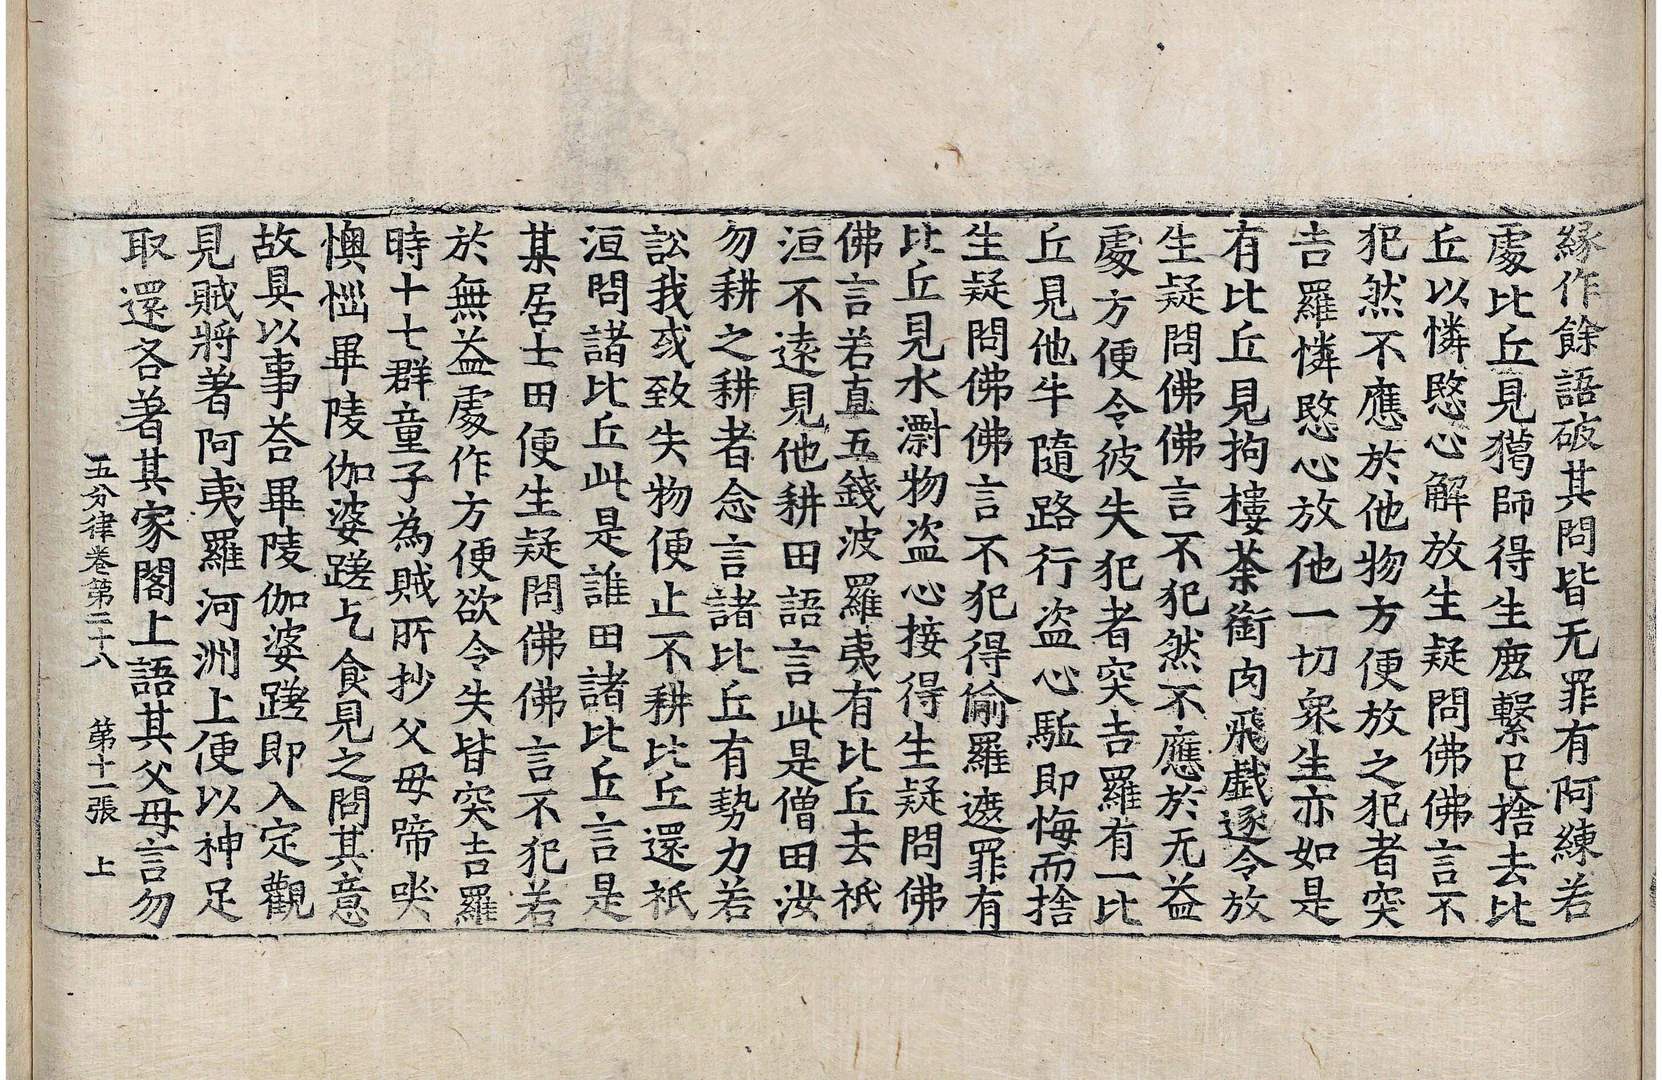 緣作餘語破其問皆无罪有阿練若
處比丘見獦師得生鹿繫已捨去比
丘以憐愍心解放生疑問佛佛言不
犯然不應於他物方便放之犯者突
吉羅憐愍心放他一切衆生亦如是
有比丘見拘樓荼銜肉飛戱逐令放
生疑問佛佛言不犯然不應於无益
處方便令彼失犯者突吉羅有一比
丘見他牛隨路行盜心駈即悔而捨
生疑問佛佛言不犯得偷羅遮罪有
比丘見水㵱物盜心接得生疑問佛
佛言若直五錢波羅夷有比丘去祇
洹不遠見他耕田語言此是僧田汝
勿耕之耕者念言諸比丘有勢力若
訟我或致失物便止不耕比丘還祇
洹問諸比丘此是誰田諸比丘言是
某居士田便生疑問佛佛言不犯若
於無益處作方便欲令失皆突吉羅
時十七群童子為賊所抄父母啼㗛
懊惱畢陵伽婆蹉乞食見之問其意
故具以事荅畢陵伽婆蹉即入定觀
見賊將著阿夷羅河洲上便以神足
取還各著其家閣上語其父母言勿
五分律卷第二十八 第十一張 上